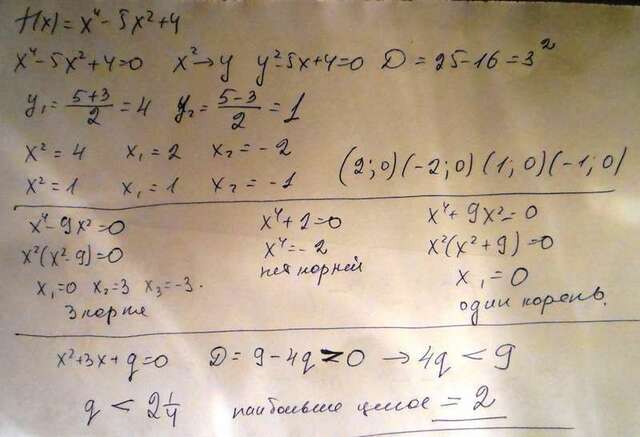 f(x) = x⁴ - 5x² + 4
x⁴ - 5x² + 4 = 0 x² → y y² - 5x + 4 = 0 D = 25 - 16 = 3²
y₁ = (5+3)/2 = 4 y₂ = (5-3)/2 = 1
x² = 4 x₁ = 2 x₂ = -2
x² = 1 x₁ = 1 x₂ = -1 (2; 0) (-2; 0) (1; 0) (-1; 0)
x⁴ - 9x² = 0
x²(x² - 9) = 0
x₁ = 0 x₂ = 3 x₃ = -3.
3 корня
x⁴ + 2 = 0
x⁴ = -2
нет корней
x⁴ + 9x² = 0
x²(x² + 9) = 0
x₁ = 0
один корень.
x² + 3x + q = 0 D = 9 - 4q > 0 → 4q < 9
q < 2 1/4 наибольшее целое = 2